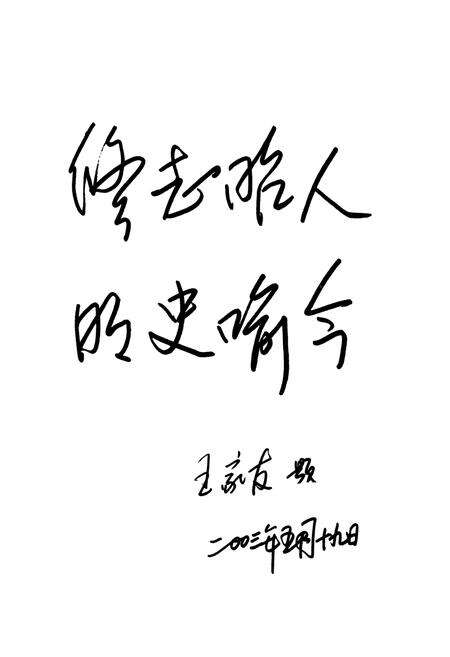 修志昭人
明史喻今
王家友 题
二〇〇三年五月十九日